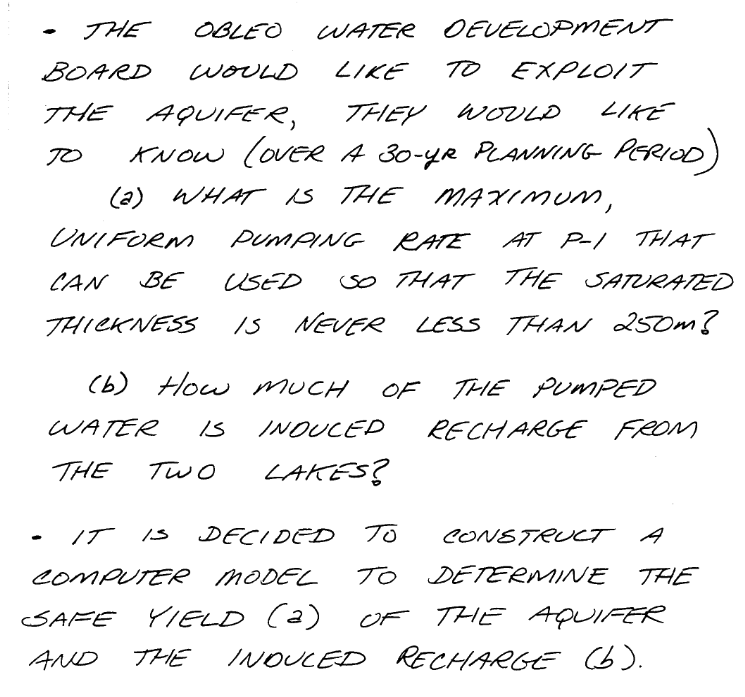 • THE OBLEO WATER DEVELOPMENT
BOARD WOULD LIKE TO EXPLOIT
THE AQUIFER, THEY WOULD LIKE
TO KNOW (OVER A 30-YR PLANNING PERIOD)
(a) WHAT IS THE MAXIMUM,
UNIFORM PUMPING RATE AT P-1 THAT
CAN BE USED SO THAT THE SATURATED
THICKNESS IS NEVER LESS THAN 250m?
(b) HOW MUCH OF THE PUMPED
WATER IS INDUCED RECHARGE FROM
THE TWO LAKES?
• IT IS DECIDED TO CONSTRUCT A
COMPUTER MODEL TO DETERMINE THE
SAFE YIELD (a) OF THE AQUIFER
AND THE INDUCED RECHARGE (b).